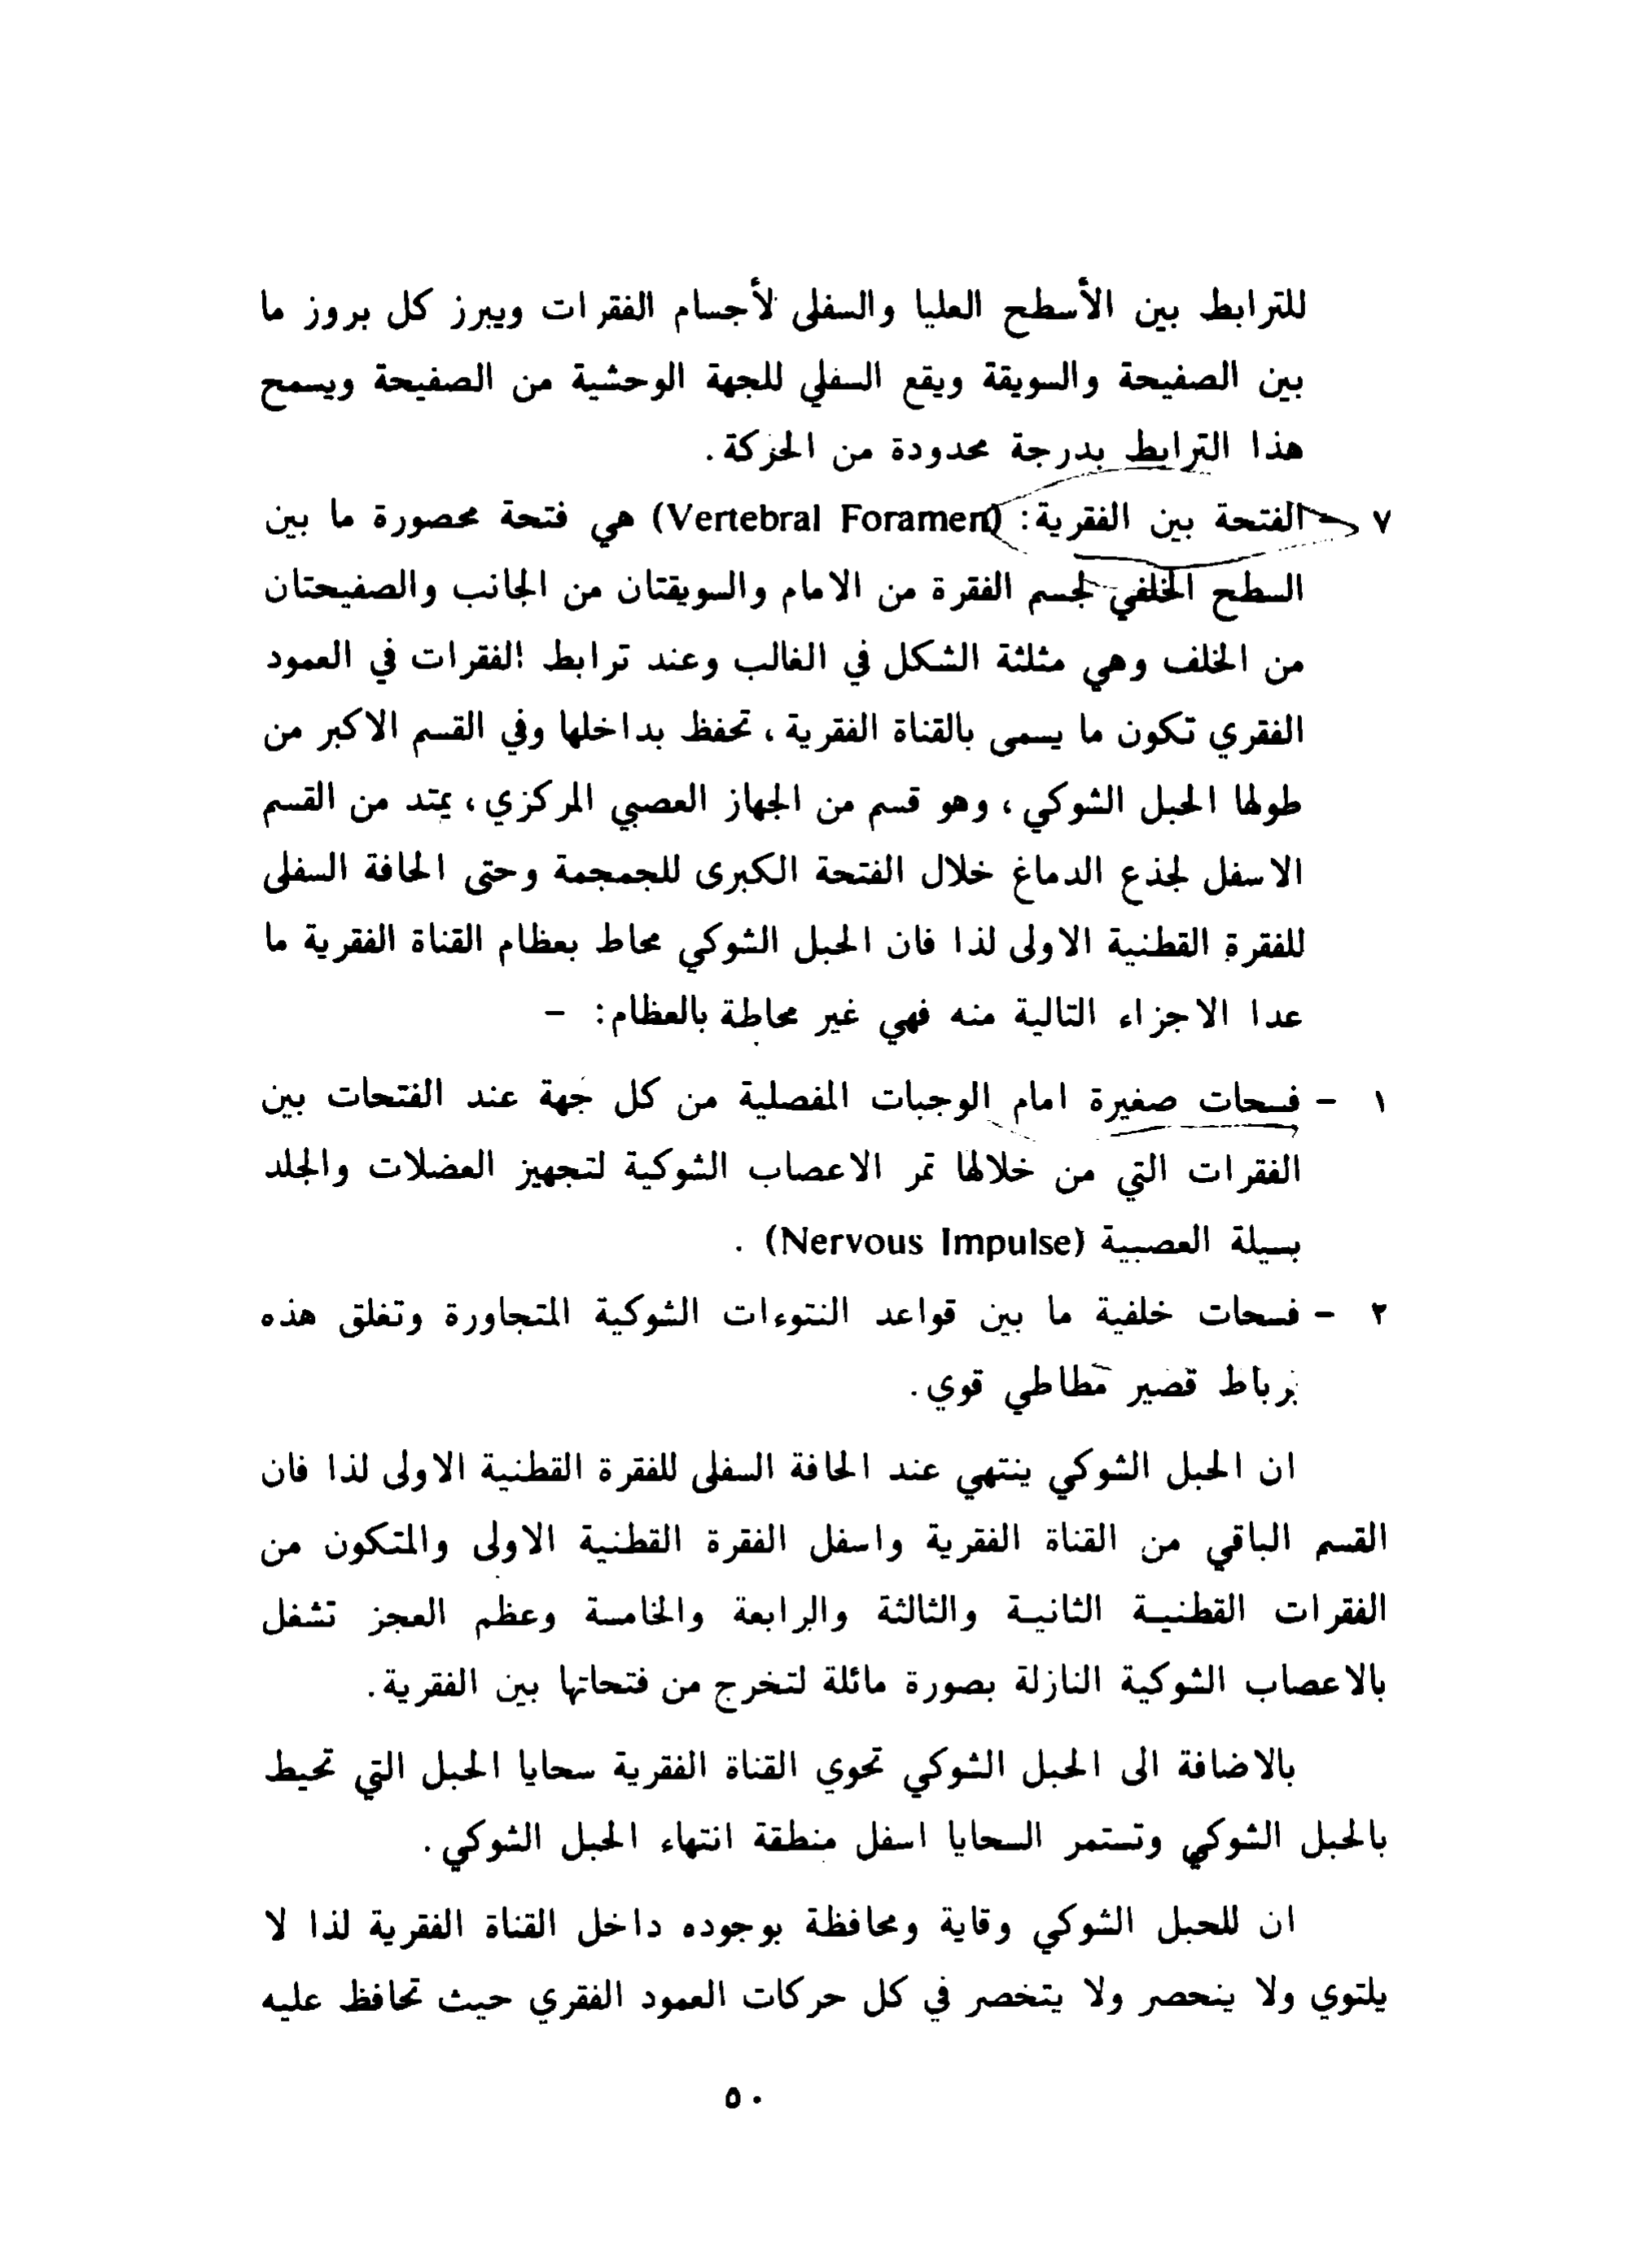 للترابط بين الأسطح العليا والسفلى لأجسام الفقرات ويبرز كل بروز ما
بين الصفيحة والسويقة ويقع السفلي للجهة الوحشية من الصفيحة ويسمح
هذا الترابط بدرجة محدودة من الحركة.
٧ - الفتحة بين الفقرية: (Vertebral Foramen) هي فتحة محصورة ما بين
السطح الخلفي لجسم الفقرة من الامام والسويقتان من الجانب والصفيحتان
من الخلف وهي مثلثة الشكل في الغالب وعند ترابط الفقرات في العمود
الفقري تكون ما يسمى بالقناة الفقرية، تحفظ بداخلها وفي القسم الاكبر من
طولها الحبل الشوكي، وهو قسم من الجهاز العصبي المركزي، يمتد من القسم
الاسفل لجذع الدماغ خلال الفتحة الكبرى للجمجمة وحتى الحافة السفلى
للفقرة القطنية الاولى لذا فان الحبل الشوكي محاط بعظام القناة الفقرية ما
عدا الاجزاء التالية منه فهي غير محاطة بالعظام: -
١ - فسحات صغيرة امام الوجبات المفصلية من كل جهة عند الفتحات بين
الفقرات التي من خلالها تمر الاعصاب الشوكية لتجهيز العضلات والجلد
بسيلة العصبية (Nervous Impulse) .
٢ - فسحات خلفية ما بين قواعد النتوءات الشوكية المتجاورة وتغلق هذه
برباط قصير مطاطي قوي.
ان الحبل الشوكي ينتهي عند الحافة السفلى للفقرة القطنية الاولى لذا فان
القسم الباقي من القناة الفقرية واسفل الفقرة القطنية الاولى والمتكون من
الفقرات القطنيـة الثانيـة والثالثة والرابعة والخامسة وعظم العجز تشغل
بالاعصاب الشوكية النازلة بصورة مائلة لتخرج من فتحاتها بين الفقرية.
بالاضافة الى الحبل الشوكي تحوي القناة الفقرية سحايا الحبل التي تحيط
بالحبل الشوكي وتستمر السحايا اسفل منطقة انتهاء الحبل الشوكي.
ان للحبل الشوكي وقاية ومحافظة بوجوده داخل القناة الفقرية لذا لا
يلتوي ولا ينحصر ولا يتخصر في كل حركات العمود الفقري حيث تحافظ عليه
٥٠